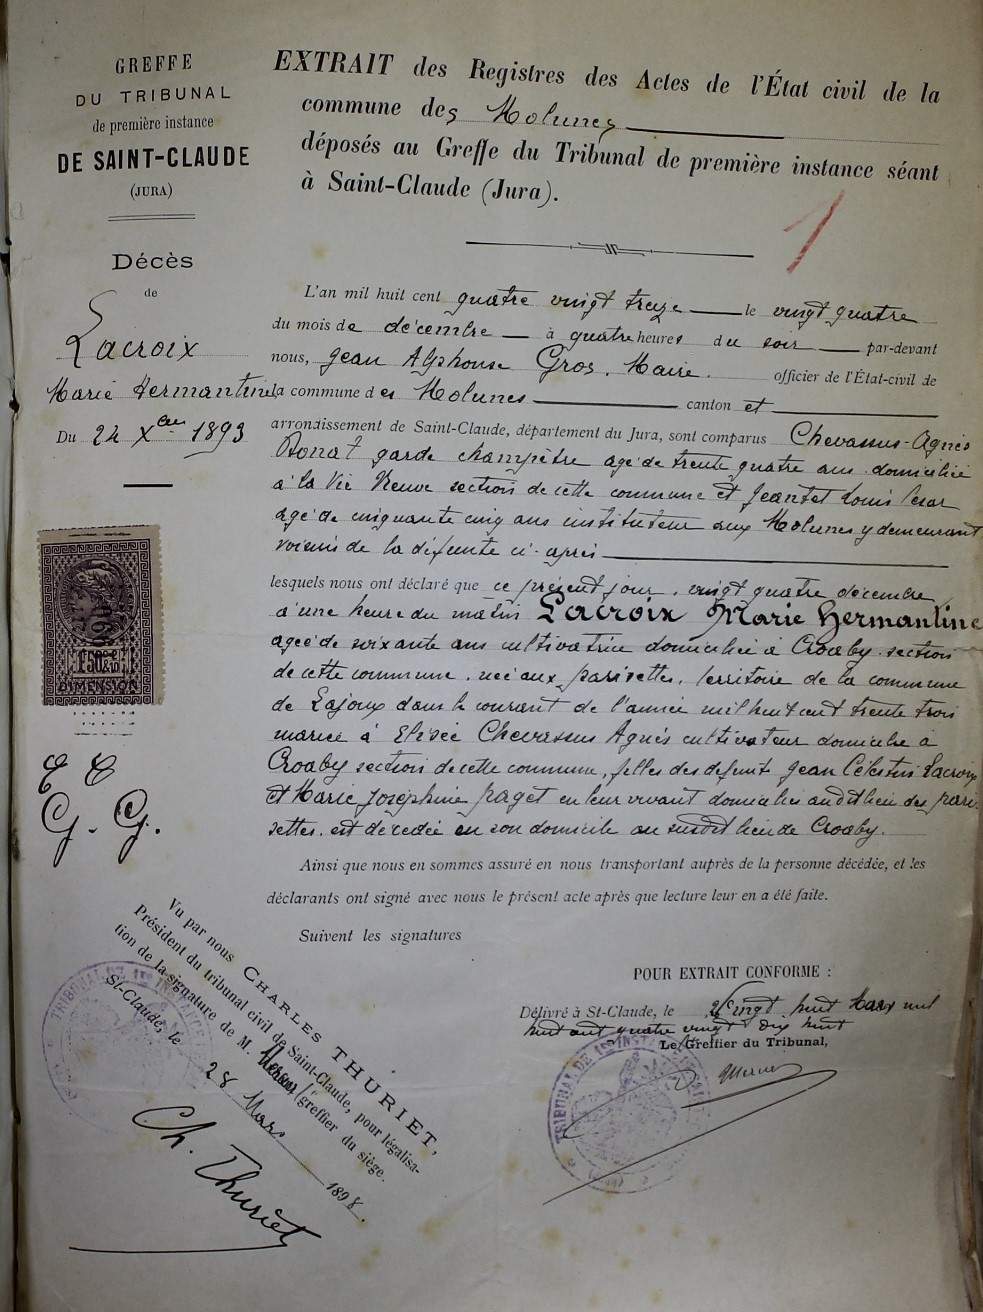 GREFFE
DU TRIBUNAL
de première instance
DE SAINT-CLAUDE
(JURA)
Décès
de
Lacroix
Marie Hermantine
Du 24 Xbre 1893
1f50c
DIMENSION
G. G.
EXTRAIT des Registres des Actes de l'État civil de la
commune des Molunes
déposés au Greffe du Tribunal de première instance séant
à Saint-Claude (Jura).
1
L'an mil huit cent quatre vingt treize le vingt quatre
du mois de décembre à quatre heures du soir par-devant
nous, Jean Alphonse Gros, Maire officier de l'État-civil de
la commune des Molunes canton et
arrondissement de Saint-Claude, département du Jura, sont comparus Chevassus-Agnès
Donat garde champêtre agé de trente quatre ans domicilié
à la Vie Neuve section de cette commune et Jeantet Louis César
agé de cinquante cinq ans instituteur aux Molunes y demeurant
voisins de la défunte ci-après
lesquels nous ont déclaré que ce présent jour, vingt quatre décembre
à une heure du matin Lacroix Marie Hermantine
agée de soixante ans cultivatrice domiciliée à Croaby section
de cette commune, née aux parisettes, territoire de la commune
de Lajoux dans le courant de l'année mil huit cent trente trois
mariée à Elisée Chevassus Agnès cultivateur domicilié à
Croaby section de cette commune, filles des défunts Jean Célestin Lacroix
et Marie Joséphine Paget en leur vivant domiciliés audit lieu des pari-
settes, est décédée en son domicile au susdit lieu de Croaby.
Ainsi que nous en sommes assuré en nous transportant auprès de la personne décédée, et les
déclarants ont signé avec nous le présent acte après que lecture leur en a été faite.
Suivent les signatures
POUR EXTRAIT CONFORME :
Délivré à St-Claude, le vingt huit Mars mil
huit cent quatre vingt dix huit
Le Greffier du Tribunal,
Vu par nous CHARLES THURIET,
Président du tribunal civil de Saint-Claude, pour légalisa-
tion de la signature de M. greffier du siège.
St-Claude, le 28 Mars 1898.
Ch. Thuriet
TRIBUNAL DE 1RE INSTANCE
TRIBUNAL DE 1RE INSTANCE